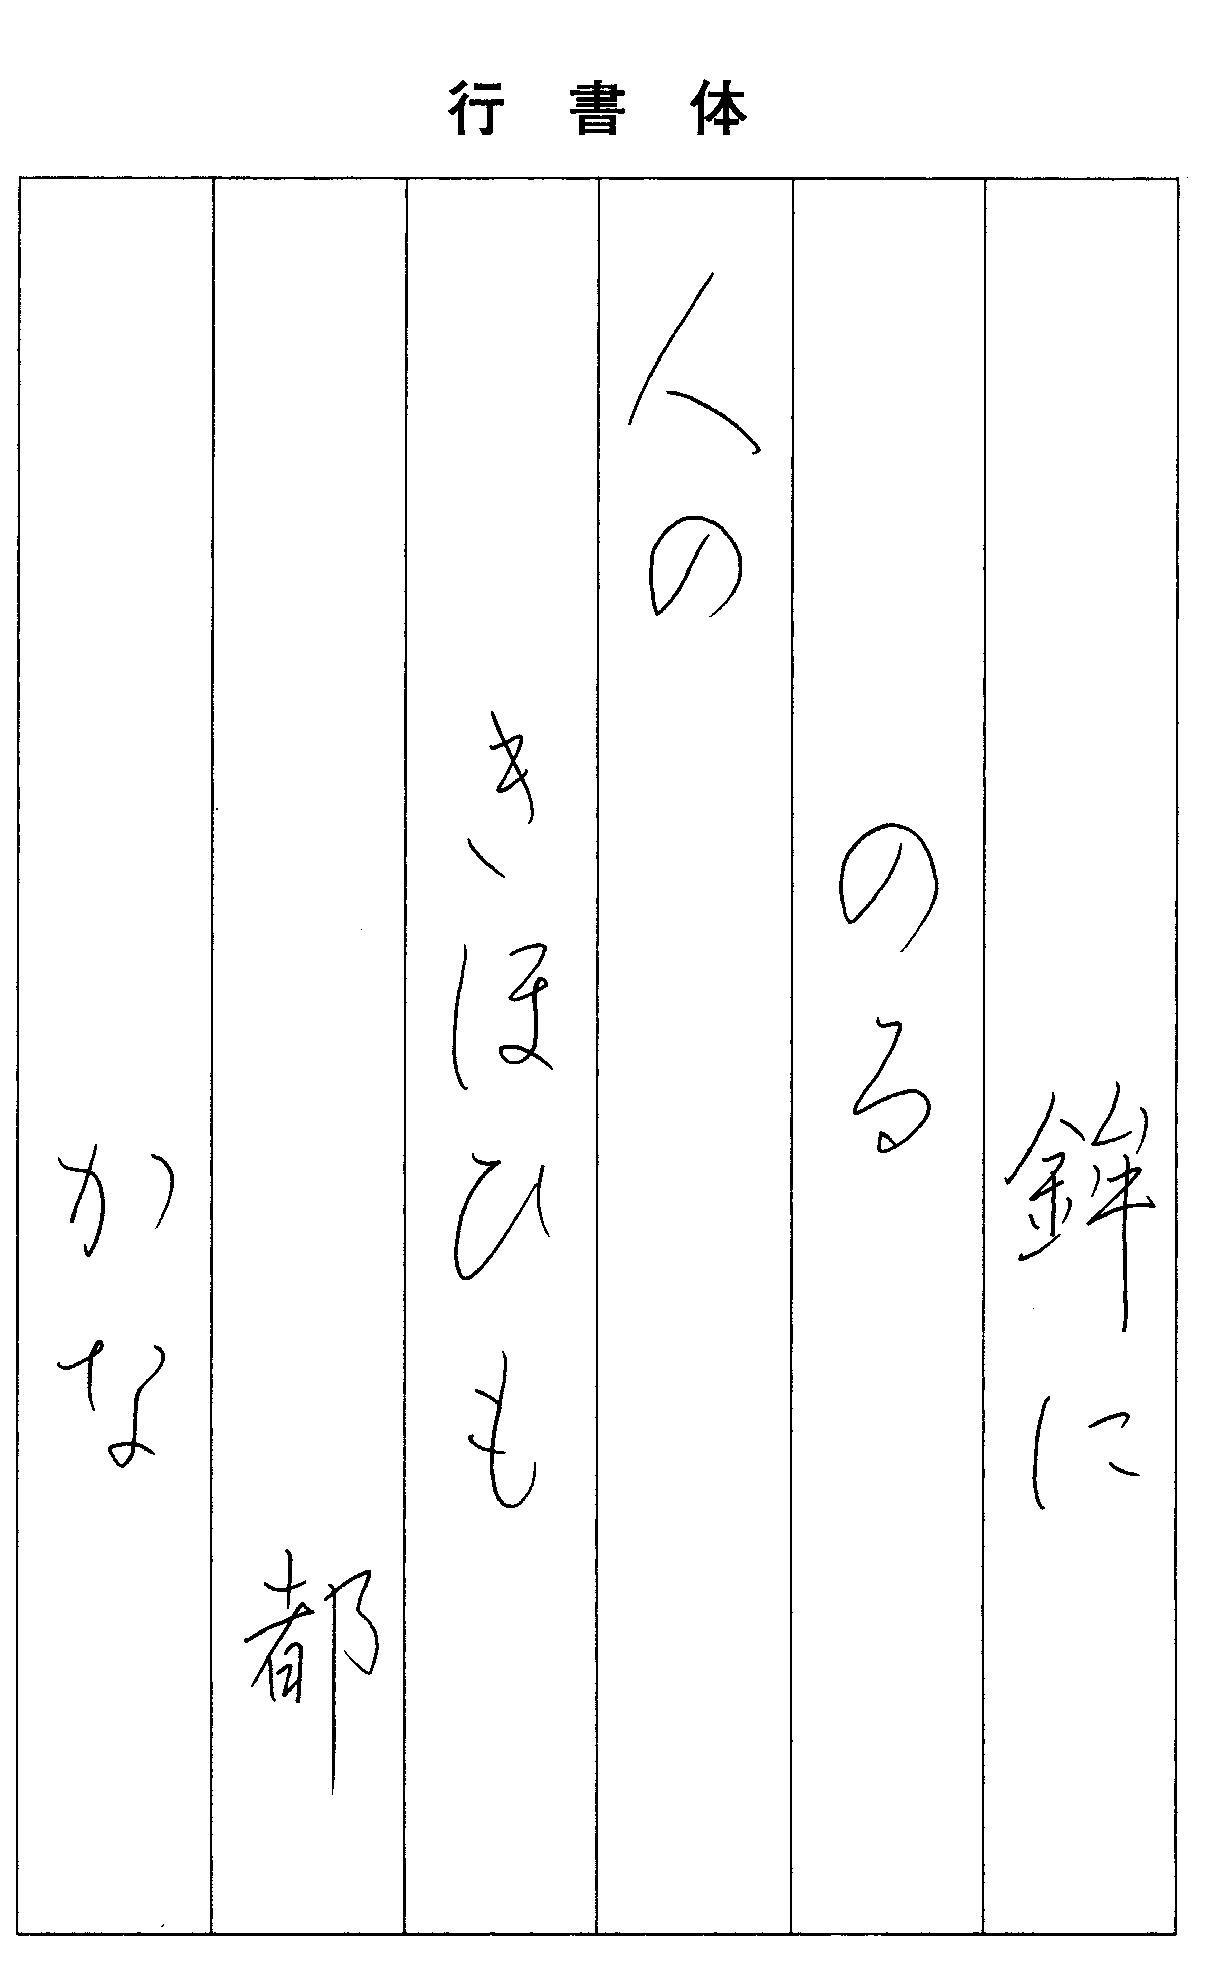 行書体
鉾に
のる
人の
きほひも
都
かな